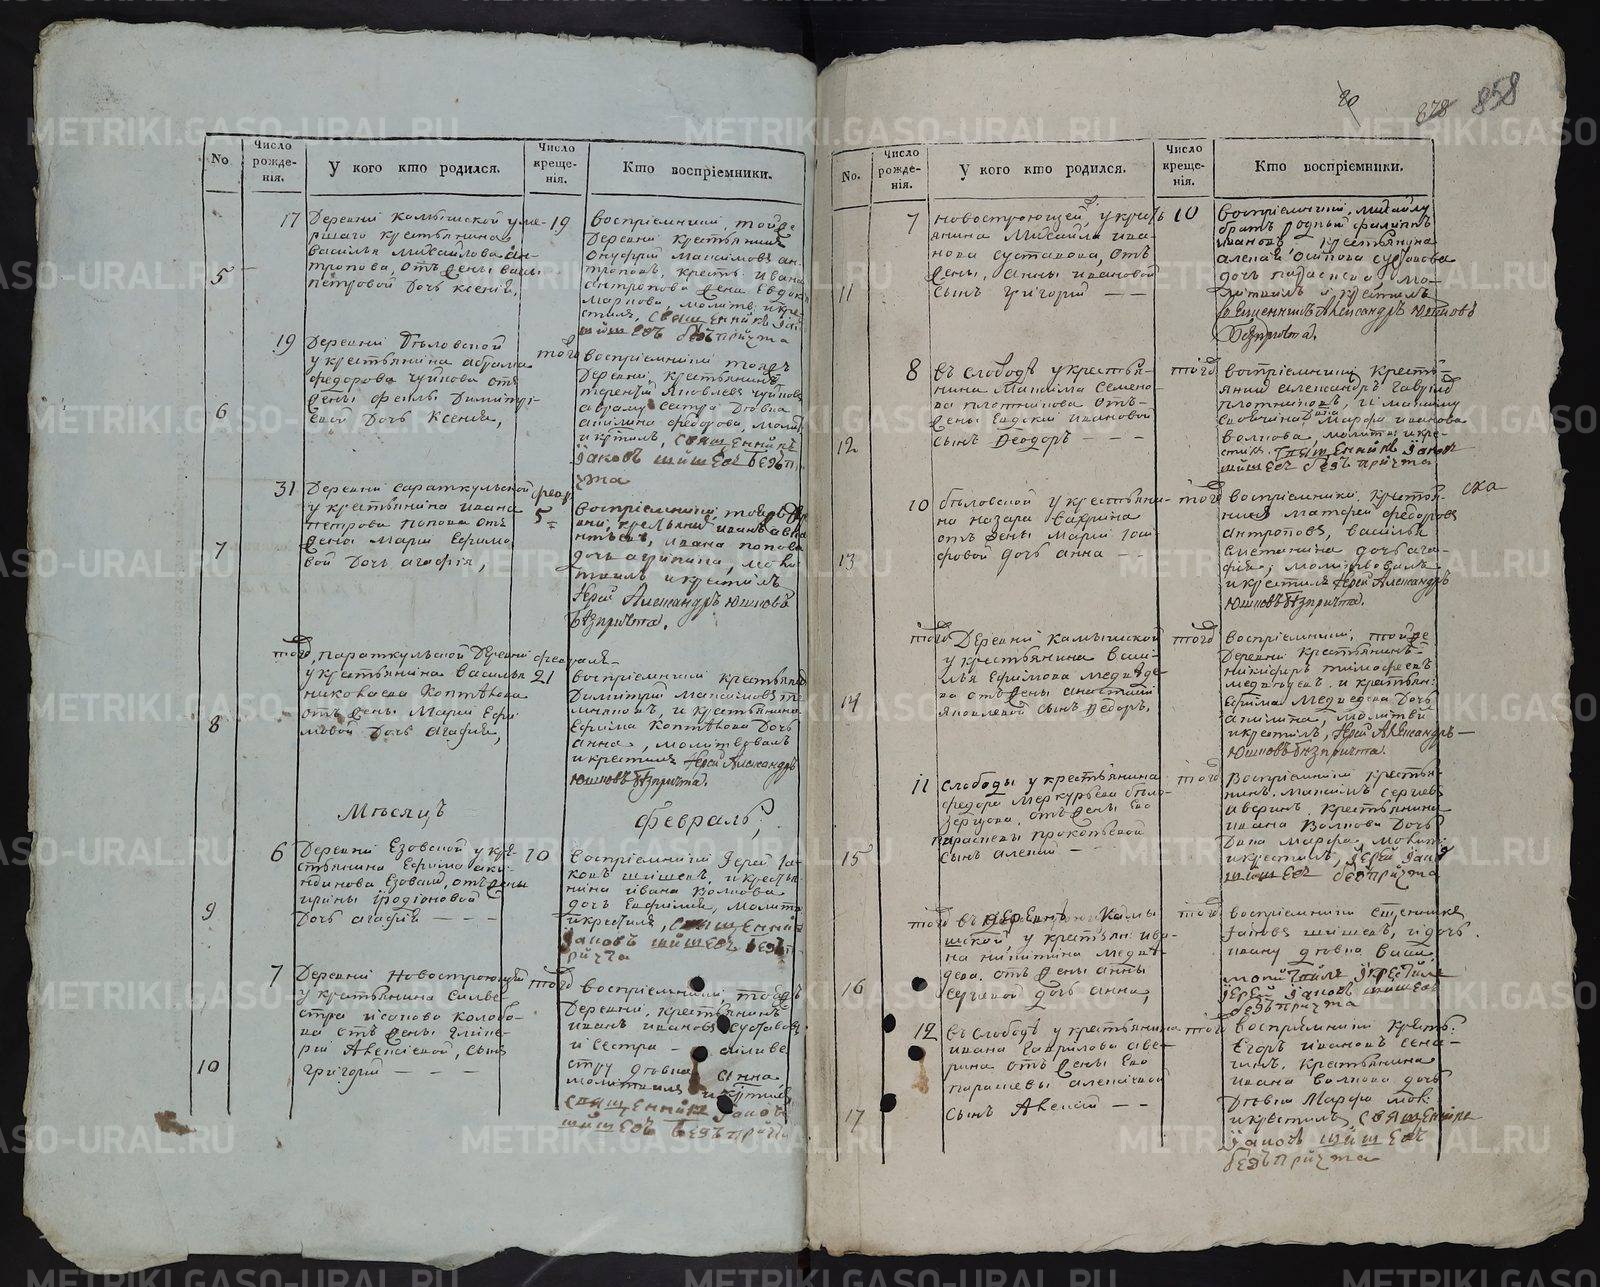 80
828
858
No
Число рожде-нія.
У кого кто родился.
Число креще-нія.
Кто воспріемники.
5
17
Деревни Камышской у уме-
ршаго крестьянина
Василья Михайлова Ан-
тропова, отъ жены Васы
Петровой дочь Ксенія,
19
Воспріемники, тойже
Деревни крестьянинъ
Онуфрій Максимовъ Ан-
троповъ, крестья: Ивана
Антропова жена Евдок:
Маркова, молитв: и кре-
стилъ, священникъ Іак
Шишевъ безъ причта
6
19
Деревни Бѣловской
у крестьянина Абрама
Федорова Чуйнова отъ
жены Феклы Димитрі-
евой дочь Ксенія,
того
Воспріемники тояжъ
Деревни крестьянинъ
Терентій Яковлевъ Чуйновъ
Абраму сестра девка
Акилина Федорова, моли:
и крстилъ, священникъ
Іаковъ Шишевъ безъ п
чта
7
31
Деревни Сараткульской
у крестьянина Ивана
Петрова Попова отъ
жены Маріи Ефимо
вой дочь Агафія,
февр
5
Воспріемники, тойже дер
Ивана Попова
дочь Агрипина, моли
твилъ и крестилъ
Іерей Александръ Юшковъ
безпричта.
8
того,
Сараткульской Деревни
у крестьянина Василья
Николаева Коптѣкова
отъ жены Маріи Ефи
мовой дочь Агафія,
февраля
21
Воспріемники крестьянинъ
Димитрій Максимовъ
и крестьянина
Ефима Коптѣкова дочь
Анна, молитвовалъ
и крестилъ Іерей Александръ
Юшковъ безпричта.
Мѣсяцъ
февраль;
9
6
Деревни Езовской у кре
стьянина Ефима Аки
ндинова Езовыхъ, отъ жены
Ирины Иродіоновой
дочь Агафія
10
Воспріемники Іерей Іа
ковъ Шишевъ, и крестья
нина Ивана Волкова
дочь Евфимія, молитв
и крестилъ, священни
Іаковъ Шишевъ безъ п
ричта
10
7
Деревни Новостроющей
у крстьянина Силве
стра Исакова Колобо
ва отъ жены Глике
ріи Алексіевой, сынъ
Григорій
того
Воспріемники, тойже
Деревни, крестьянинъ
Иванъ Ивановъ Суставовъ
и сестра Силве
стру девка Анна
молитвилъ и крстилъ
священникъ Іаковъ
Шишевъ безъ причта
No.
Число рожде-нія.
У кого кто родился.
Число креще-нія.
Кто воспріемники.
11
7
Новостроющей д. у кресть
янина Михайла Ива-
нова Суставова, отъ
жены, Анны Ивановой
сынъ Григорій
10
Воспріемники, Михайлу
братъ родный Филипъ
Ивановъ, крестьянина
Алексія Осипова Суставова
дочь Парасковья, мо-
литвилъ и крстилъ
священникъ Александръ Юшковъ
безпричта.
12
8
въ Слободѣ у крестья-
нина Максима Семено-
ва Плотникова отъ
жены Евдокіи Ивановой
сынъ Феодоръ
того
Воспріемники кресть-
янинъ Александръ Гаврилов
Плотниковъ, и
дѣвица Марфа Иванова
Волкова, молитв: и кре-
стилъ. священникъ Іаков
Шишевъ безъ причта
13
10
Бѣловской у крестьяни-
на Назара Вахрина
отъ жены Маріи Іоси
фовой дочь Анна
того
Воспріемники, крстья-
нинъ Матфей Федоровъ
Антроповъ, Василья
Сметанина дочь Ага-
фія; молитвовалъ
и крестилъ Іерей Александръ
Юшковъ безпричта.
ска
14
того
Деревни Камышской
у крестьянина Васи-
лья Ефимова Медвѣде-
ва отъ жены Анастасіи
Яковлевой сынъ Федоръ,
того
Воспріемники, тойже
Деревни крестьянинъ
Никифоръ Тимофеевъ
Медведевъ, и крестьян:
Ефима Медведева дочь
Акилина, молитви
и крестилъ, Іерей Александръ
Юшковъ безпричта.
15
11
Слободы у крестьянина
Федора Меркурьева Бѣло
зерцова, отъ жены ево
Парасковьи Прокопьевой
сынъ Алексій
того
Воспріемники крестья-
нинъ, Максимъ Сергіевъ
Аверинъ, крестьянина
Ивана Волкова дочь
дѣвка Марфа, молит
и крестилъ, Іерей Іаков
Шишевъ безпричта
16
того
въ Деревнѣ Камы
шской, у крстьян: Ива
на Никитина Медвѣ
дева, отъ жены Анны
Сергіевой дочь Анна,
того
Воспріемники сщенникъ
Іаковъ Шишевъ, и дочь
Ивану девка Васса
молитвилъ и крестилъ
Іерей Іаковъ Шишевъ
безъ причта
17
12
въ Слободѣ у крестьянина
Ивана Гаврилова Аве-
рина отъ жены ево
Парасковьи Алексіевой
сынъ Алексій
того
Воспріемники кресть:
Егоръ Ивановъ Сена-
чинъ, крестьянина
Ивана Волкова дочь
девка Марфа мол:
и крестилъ, священникъ
Іаковъ Шишевъ
безъ причта